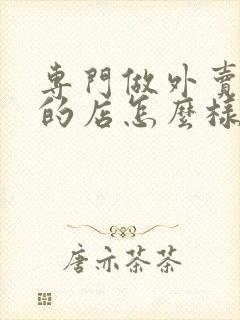 專門做外賣
的店怎麼樣
唐亦茶茶